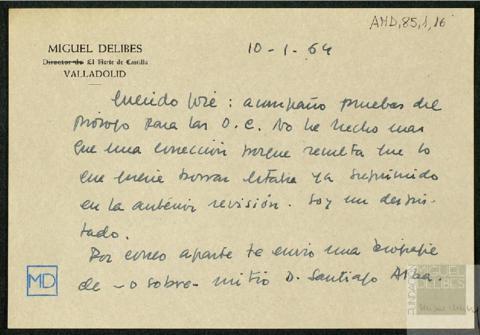 AMD,85,1,16
MIGUEL DELIBES
Director de El Norte de Castilla
VALLADOLID
10-1-64
Querido José: acompaño pruebas del
prólogo para las O.C. No he hecho mas
que una corrección porque resulta que lo
que quería borrar estaba ya suprimido
en la anterior revisión. Soy un despis-
tado.
Por correo aparte te envío una biografía
de -o sobre- mi tío D. Santiago Alba.
MD
FUNDACIÓN
MIGUEL
DELIBES